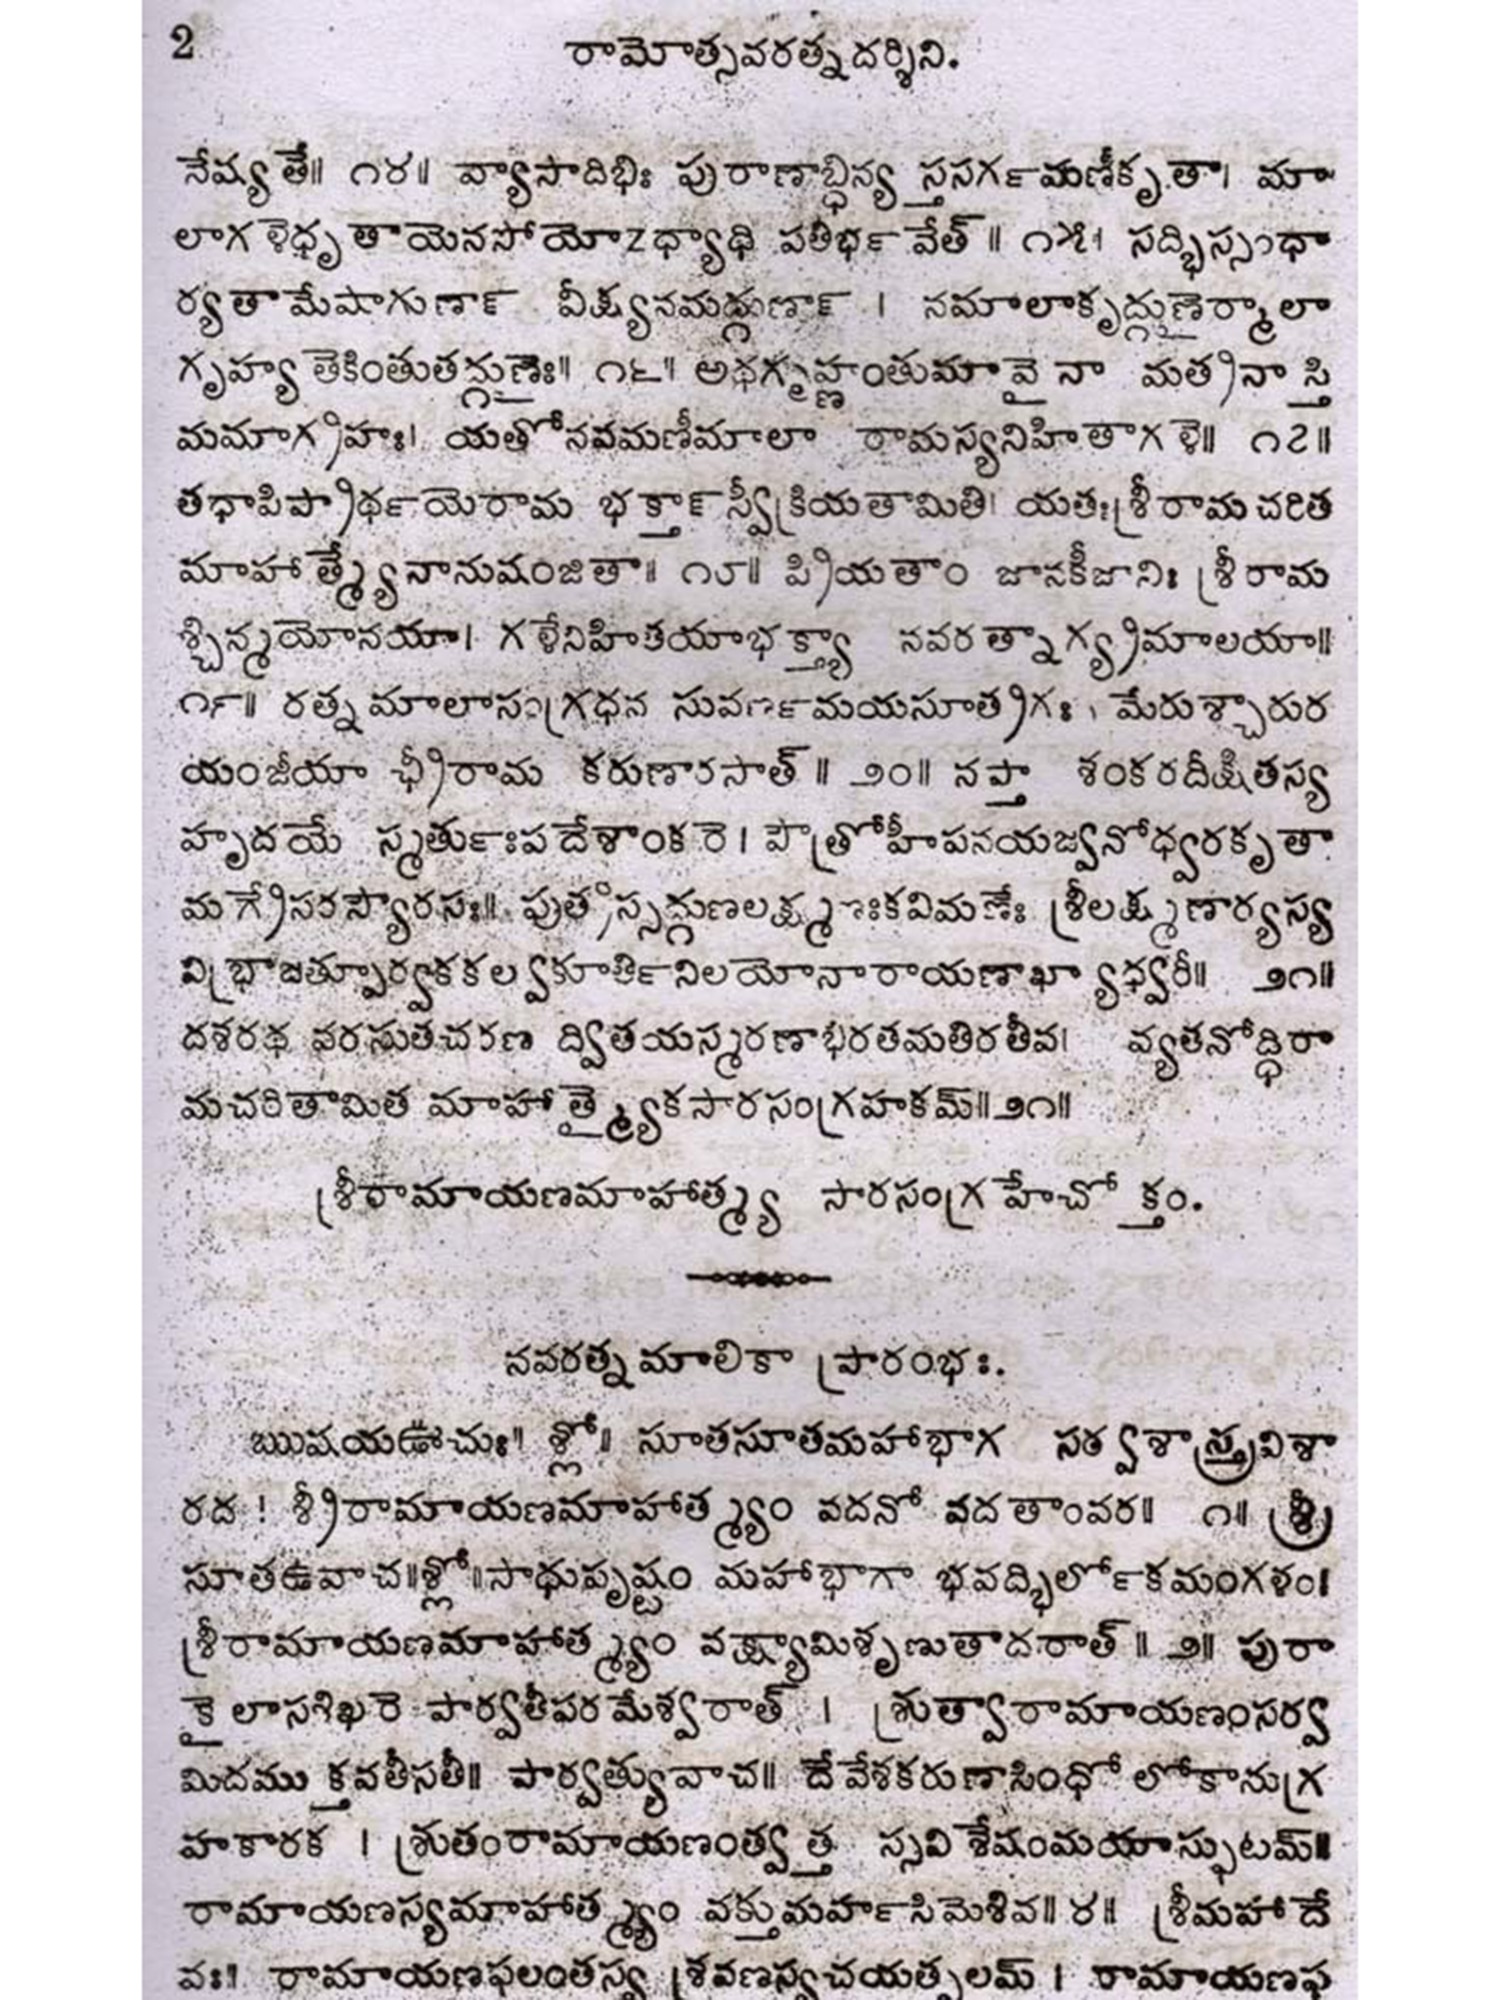 2
రామోత్సవరత్నదర్శిని.
నేష్యతే॥ ౧౪॥ వ్యాసాదిభిః పురాణాబ్ధిన్య స్తసర్గమణీకృతా। మా
లాగళెధృతాయెనసోయోఽధ్యాధి పతిర్భవేత్॥ ౧౫। సద్భిస్సంధా
ర్యతామేషాగుణా౯ వీక్ష్యనమద్గుణా౯ । నమాలాకృద్గుణైర్మాలా
గృహ్యతెకింతుతద్గుణైః॥ ౧౬॥ అథగృహ్ణంతుమావై నా మత్రినాస్తి
మమాగ్రహః। యతోనవమణీమాలా రామస్యనిహితాగళె॥ ౧౭॥
తథాపిప్రార్థయెరామ భక్తా౯స్వీక్రియతామితి। యతఃశ్రీరామచరిత
మాహాత్మ్యేనానుషంజితా॥ ౧౮॥ ప్రియతాం జానకీజానిః శ్రీరామ
శ్చిన్మయోనయా। గళేనిహితయాభక్త్యా నవరత్నాగ్య్రమాలయా॥
౧౯॥ రత్నమాలాసంగ్రధన సువర్ణమయసూత్రగః। మేరుశ్చారుర
యంజీయా చ్ఛ్రీరామ కరుణారసాత్॥ ౨౦॥ నప్తా శంకరదీక్షితస్య
హృదయే స్మర్తుఃపదేశాంకరె। పౌత్రోహీపనయజ్వనోధ్వరకృతా
మగ్రేసరస్యౌరసః॥ పుత్రస్సద్గుణలక్ష్మణఃకవిమణేః శ్రీలక్ష్మణార్యస్య
విభ్రాజత్పూర్వకకల్వకూర్తినిలయోనారాయణాఖ్యాధ్వరీ॥ ౨౧॥
దశరథ వరసుతచరణ ద్వితయస్మరణాభిరతమతిరతీవ। వ్యతనోద్ధిరా
మచరితామిత మాహాత్మ్యైకసారసంగ్రహకమ్॥౨౧॥
శ్రీరామాయణమాహాత్మ్య సారసంగ్రహేచోక్తం.
నవరత్నమాలికా ప్రారంభః.
ఋషయఊచుః॥ శ్లో॥ సూతసూతమహాభాగ సర్వశాస్త్రవిశా
రద ! శ్రీరామాయణమాహాత్మ్యం వదనో వదతాంవర॥ ౧॥ శ్రీ
సూతఉవాచ॥శ్లో॥సాధుపృష్టం మహాభాగా భవద్భిర్లోకమంగళం।
శ్రీరామాయణమాహాత్మ్యం వక్ష్యామిశృణుతాదరాత్॥ ౨॥ పురా
కైలాసశిఖరె పార్వతీపరమేశ్వరాత్ । శ్రుత్వారామాయణంసర్వ
మిదము క్తవతీసతీ॥ పార్వత్యువాచ॥ దేవేశకరుణాసింధో లోకానుగ్ర
హకారక । శ్రుతంరామాయణంత్వత్త స్సవిశేషంమయాస్ఫుటమ్॥
రామాయణస్యమాహాత్మ్యం వక్తుమర్హసిమెశివ॥ ౪॥ శ్రీమహాదే
వః॥ రామాయణఫలంతస్య శ్రవణస్యచయత్ఫలమ్ । రామాయణఫ